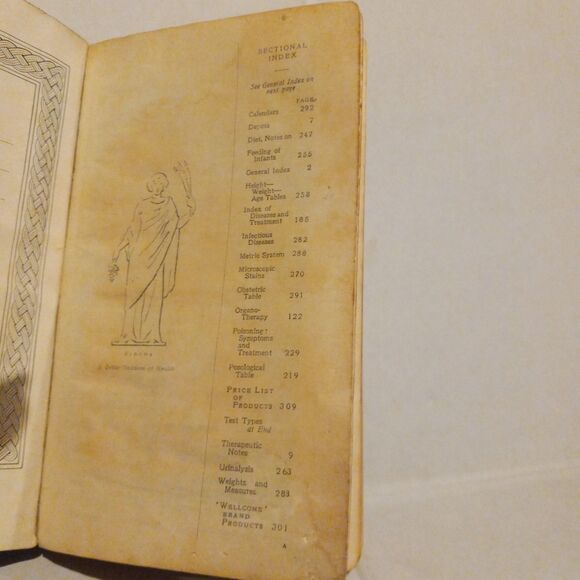 SECTIONAL
INDEX
See General Index on
next page
PAGE
Calendars 292
Depots 7
Diet, Notes on 247
Feeding of
Infants 255
General Index 2
Height—
Weight—
Age Tables 258
Index of
Diseases and
Treatment 185
Infectious
Diseases 282
Metric System 288
Microscopic
Stains 270
Obstetric
Table 291
Organo-
Therapy 122
Poisoning:
Symptoms
and
Treatment 229
Posological
Table 219
PRICE LIST
OF
PRODUCTS 309
Test Types
at End
Therapeutic
Notes 9
Urinalysis 263
Weights and
Measures 283
'WELLCOME'
BRAND
PRODUCTS 301
A
Goddess of Health